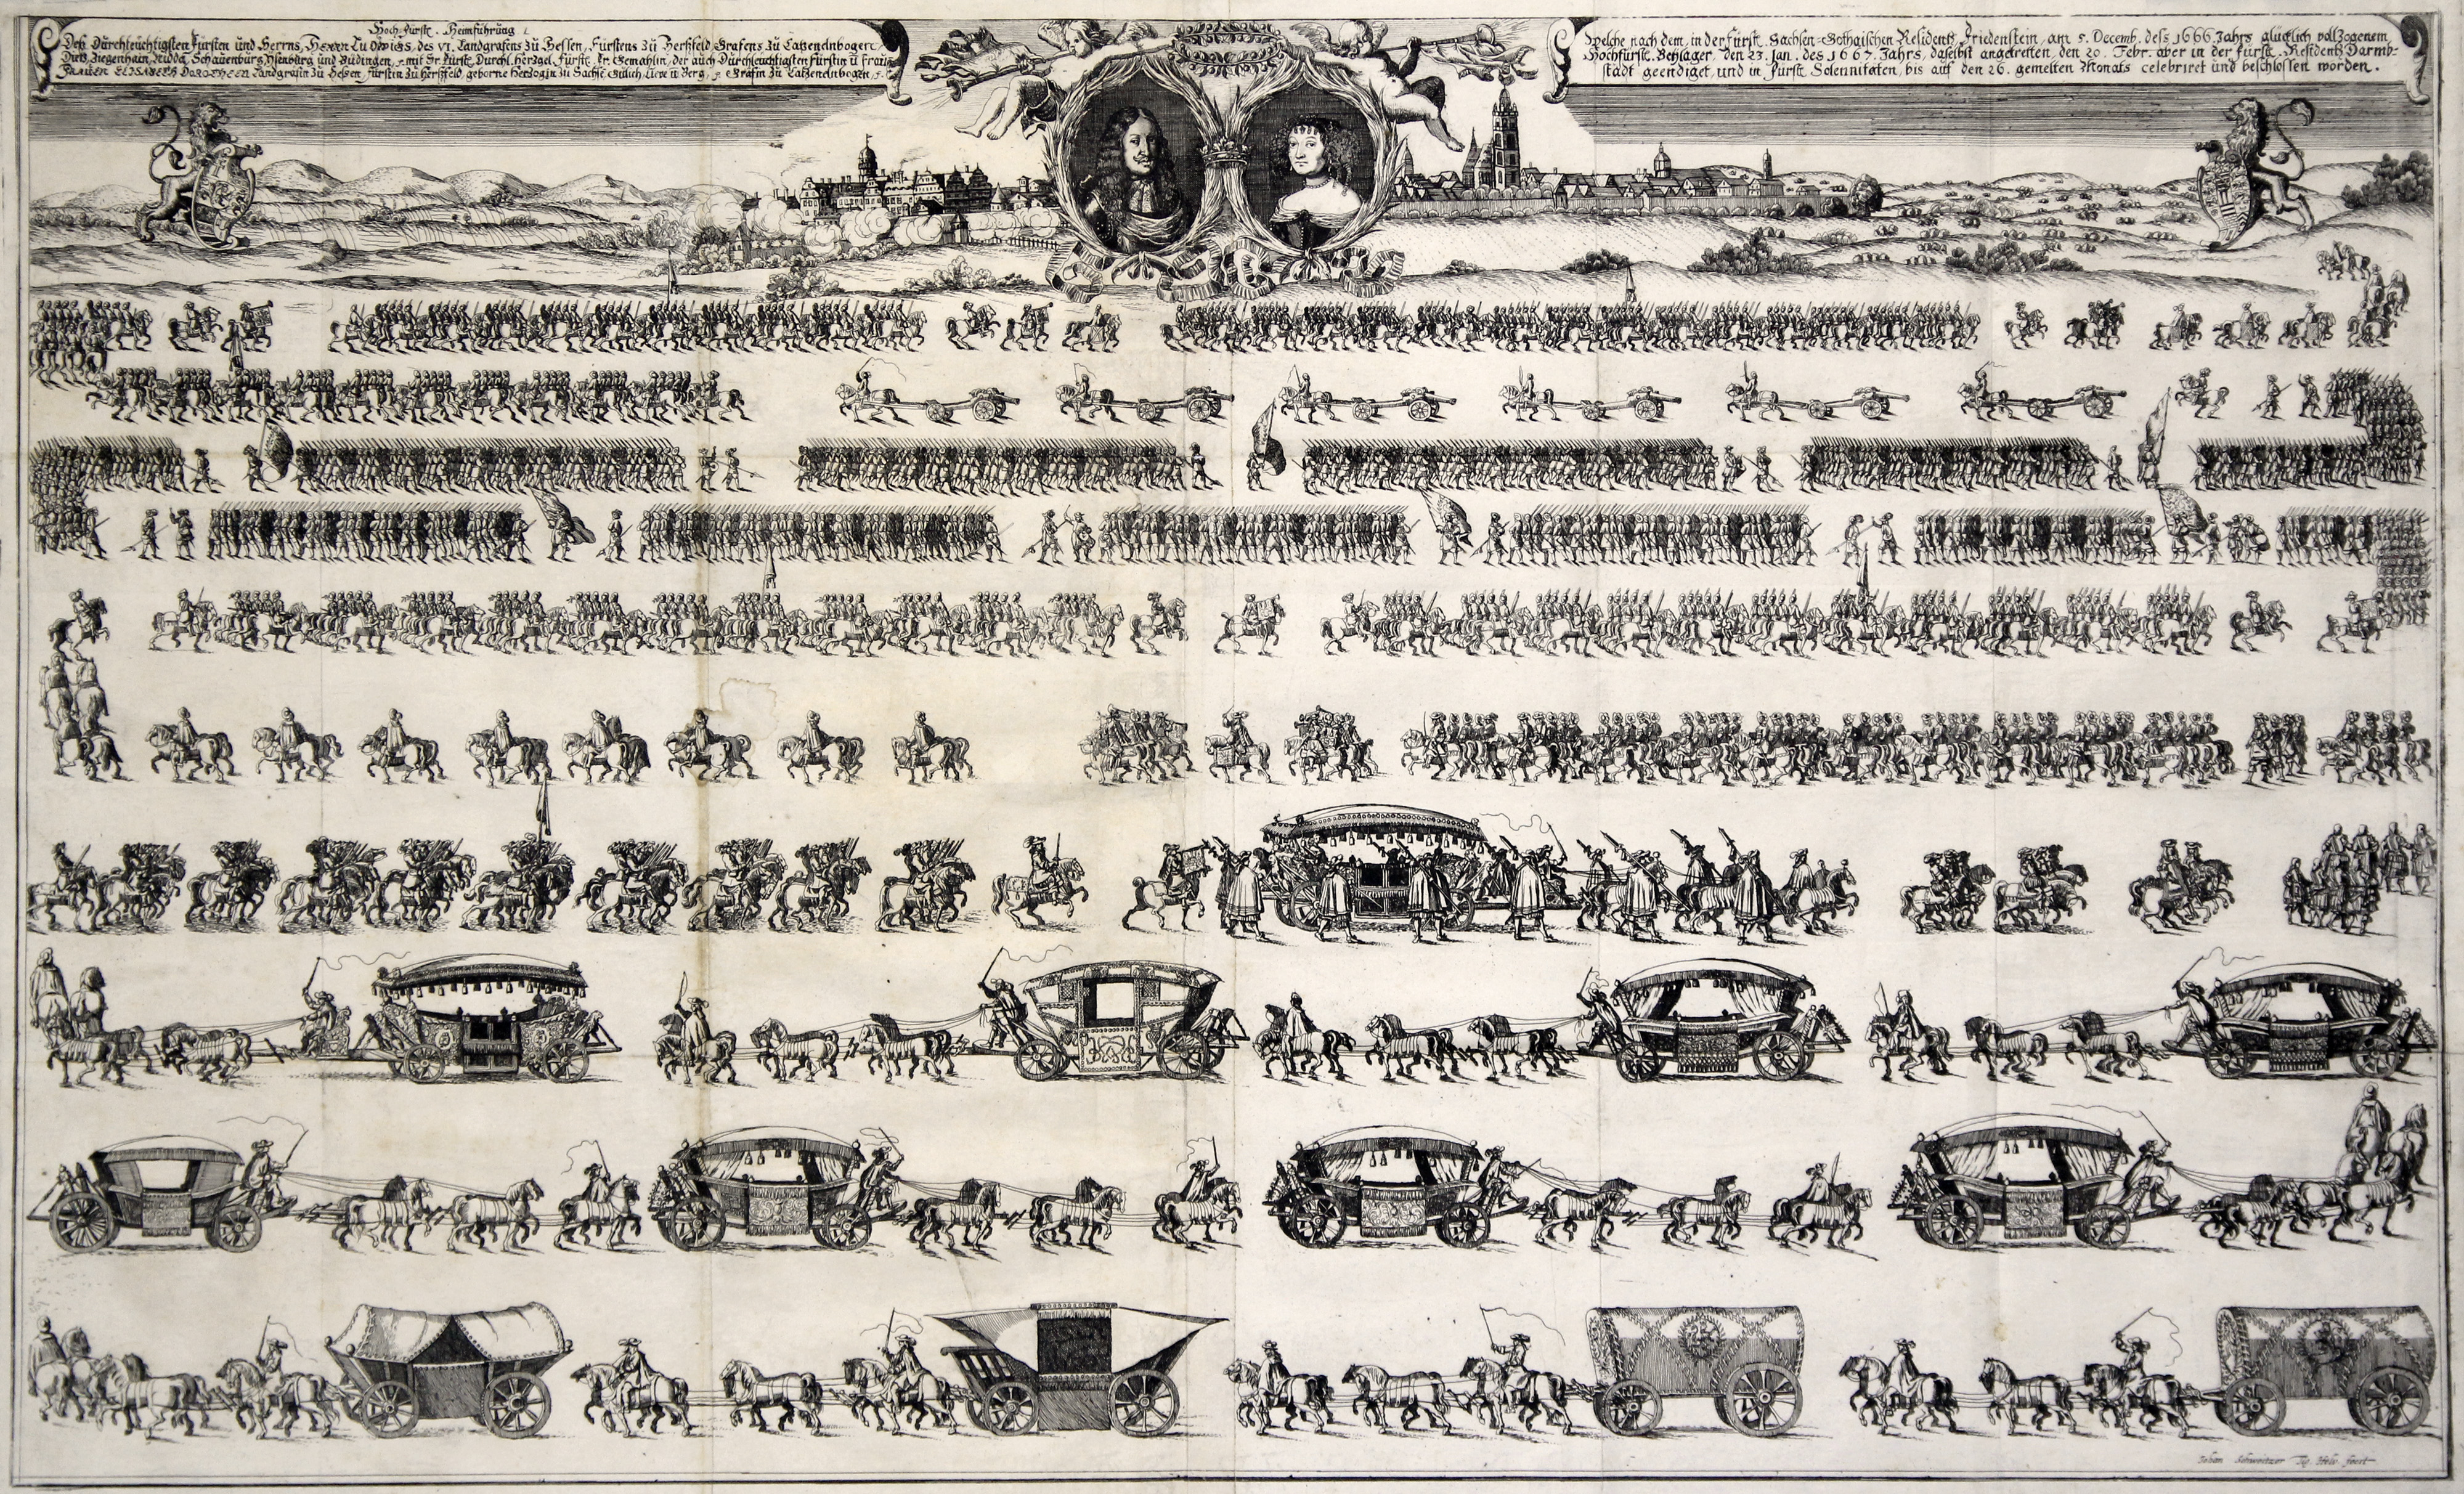 Hoch-fürstl. Heimführung
Deß Durchleuchtigsten Fürsten und Herrns, Herrn Ludwigs, des VI. Landgrafens zu Hessen, Fürstens zu Herßfeld, Grafens zu Catzenelnbogen,
Dietz, Ziegenhain, Nidda, Schauenburg, Ysenburg und Büdingen, mit Dr. Fürstl. Durchl. Herzgel. Fürstl. Fr. Gemahlin, der auch Durchleuchtigsten Fürstin u Frauen
Frauen Elisabeth Dorotheen Landgräfin zu Hessen, Fürstin zu Herßfeld, geborne Hertzogin zu Sachs. Gülich, Cleve u Berg, Gräfin zu Catzenelnbogen
Welche nach dem, in der Fürstl. Sachsen-Gothaischen Residentz Friedenstein, am 5. Decemb. deß 1666 Jahrs glücklich vollzogenem
Hochfürstl. Beylager, den 23. Jan. des 1667. Jahrs, daselbst angetretten, den 20. Febr. aber in der Fürstl. Residentz Darmb-
stadt geendiget, und in Fürstl. Solennitäten, bis auf den 26. gemelten Monats celebriret und beschlossen worden.
Johan Schweitzer Tig. Helv. fecit